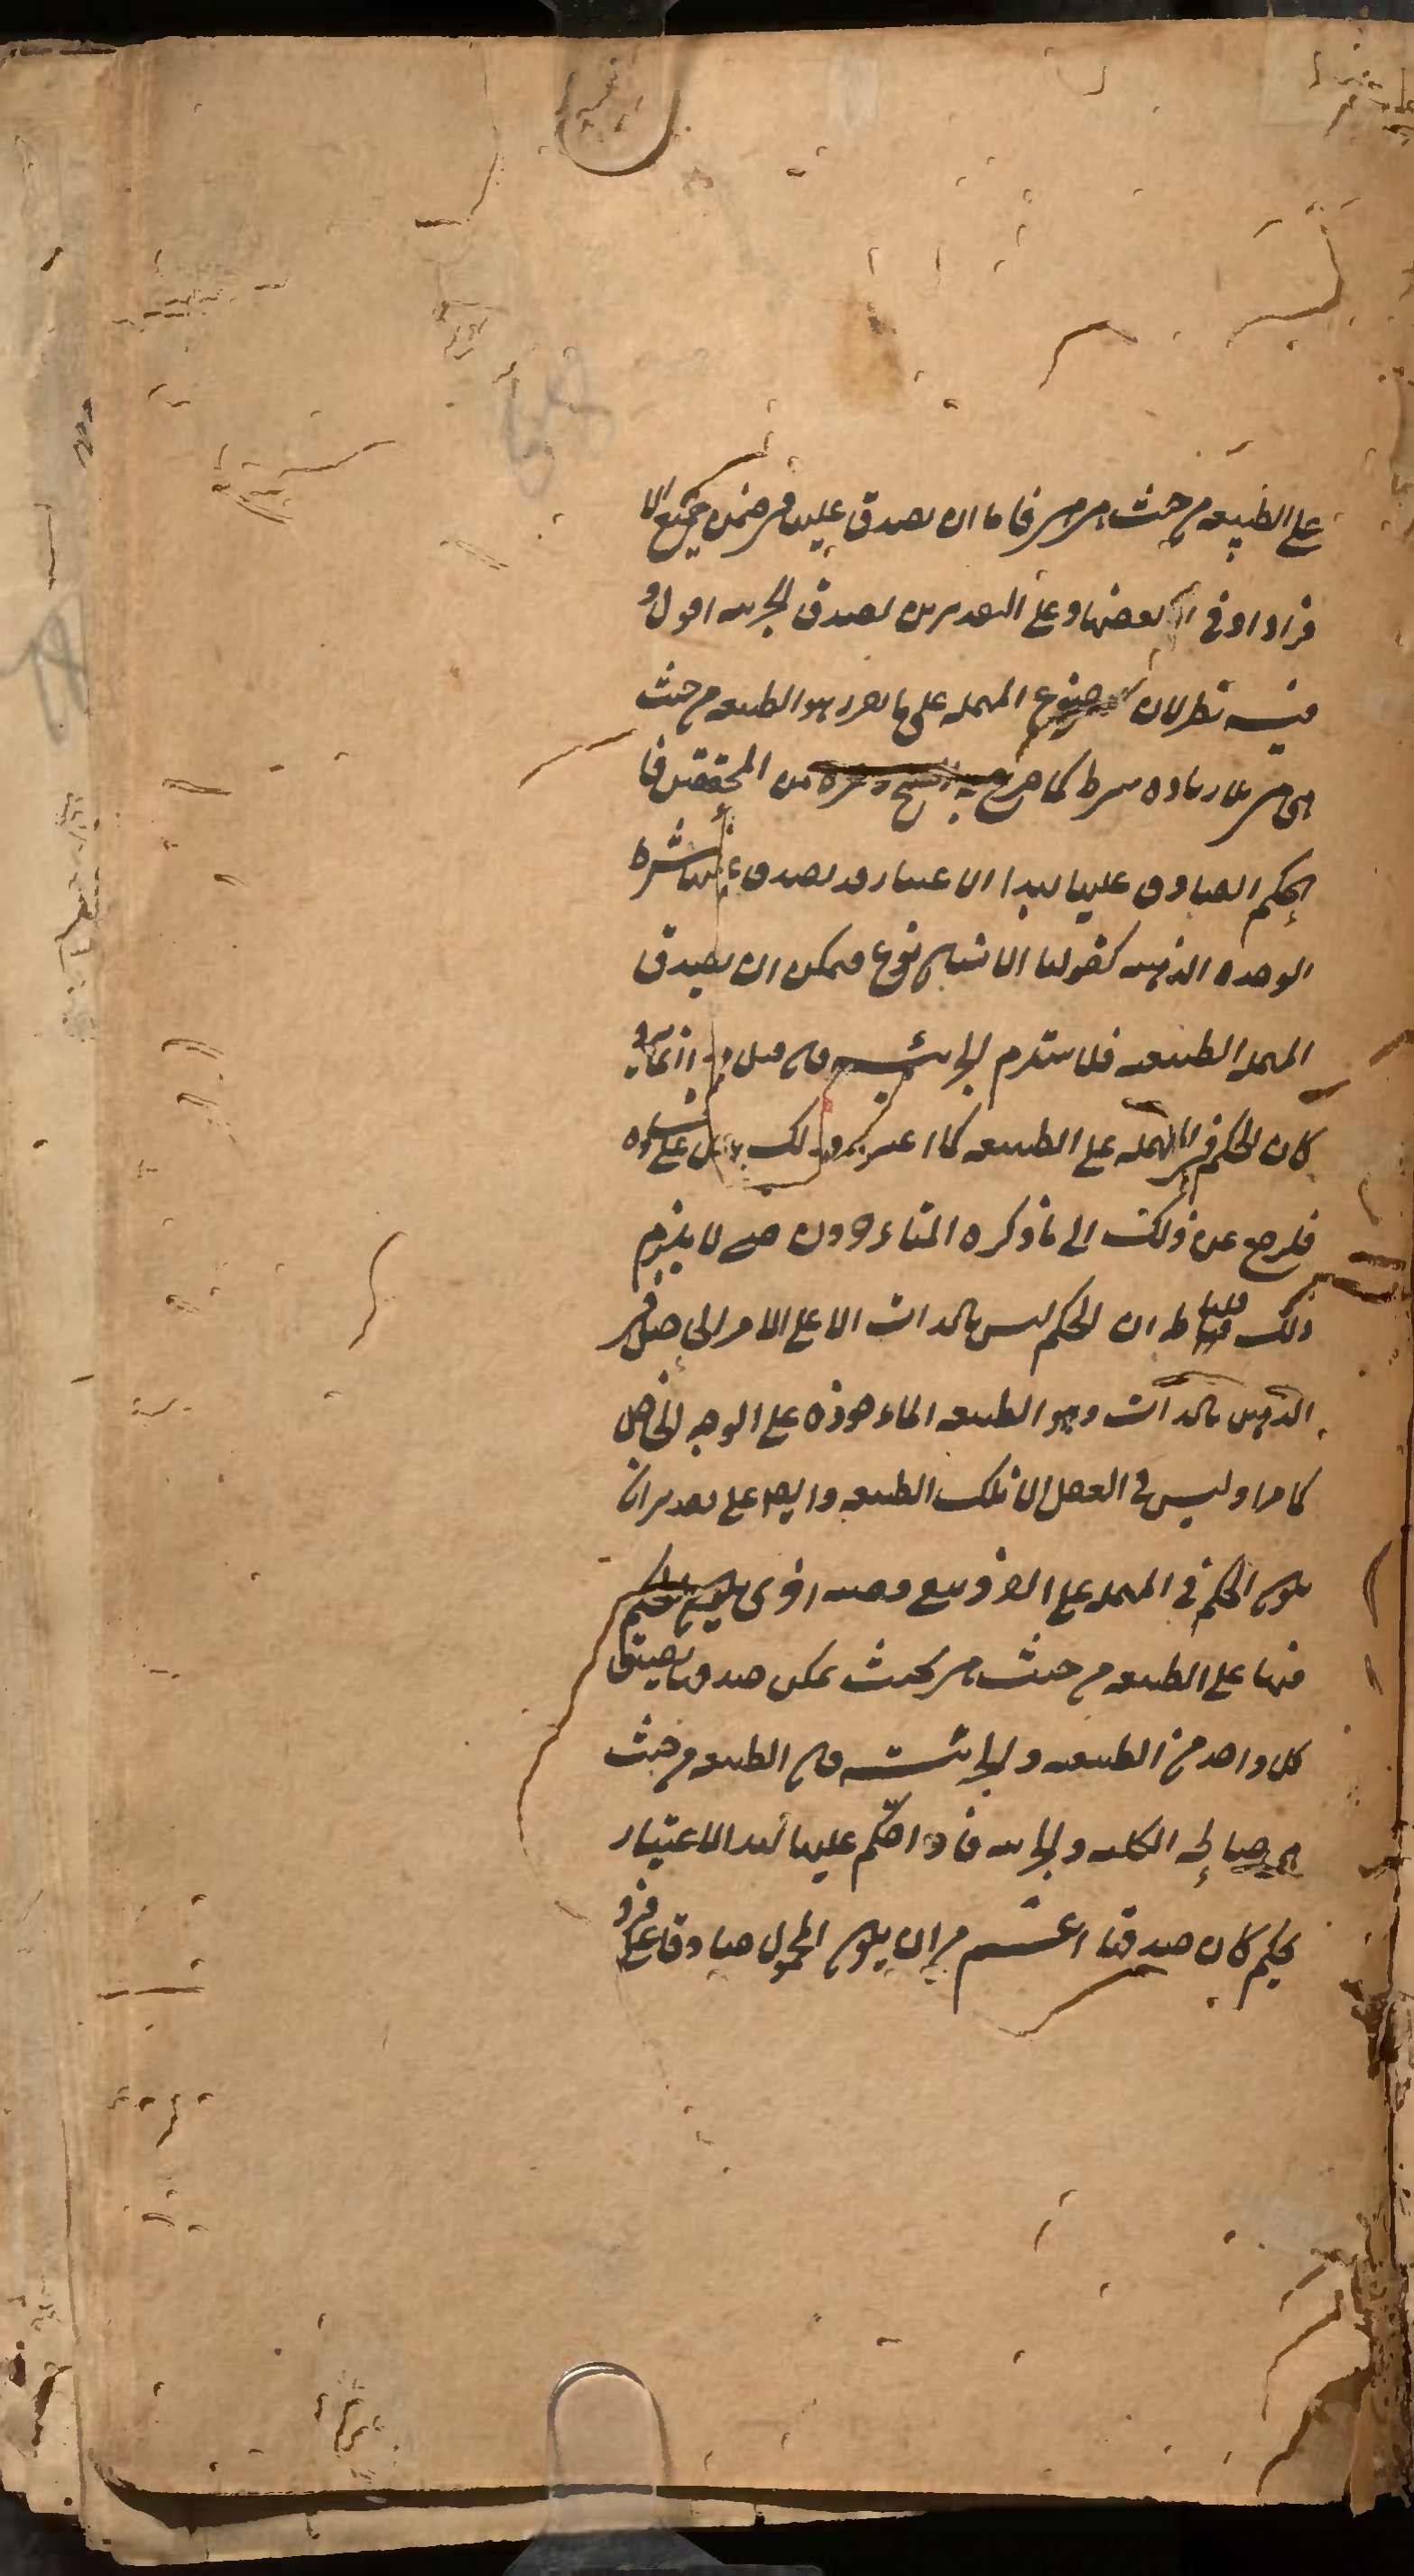 على الطبيعة من حيث هي هي فاما ان يصدق عليها في ضمن جميع الا
فراد او في بعضها وعلى التقديرين يصدق الجزئية اقول و
فيه نظر لان موضوع المهملة على ما تقرر هو الطبيعة من حيث
هي هي بلا زيادة شرط كما صرح به الشيخ وغيره من المحققين فا
لحكم الصادق عليها بهذا الاعتبار قد يصدق عليها بشرط
الوحدة الذهنية كقولنا الانسان نوع فيمكن ان يصدق
المهملة الطبيعية فلا يستلزم الجزئية فان قيل انما
كان الحكم في المهملة على الطبيعة كما اعترفت على
فلرجع عن ذلك الى ما ذكره المتاخرون حتى لا يلزم
ذلك قلنا ان الحكم ليس بالذات الا على الامر الحاصل في
الذهن بالذات وهو الطبيعة الماخوذة على الوجه الخاص
كما مر اذ ليس في العقل الا تلك الطبيعة وايضا على تقدير ان
يكون الحكم في المهملة على الافراد يبقى قضية اخرى يحكم
فيها على الطبيعة من حيث هي بحيث يمكن صدقها بصدق
كل واحد من الطبيعية والجزئية فان الطبيعة من حيث
هي صالحة الكلية والجزئية فاذا حكم عليها بهذا الاعتبار
بحكم كان صدقها اعم من ان يكون المحمول صادقا على فرد